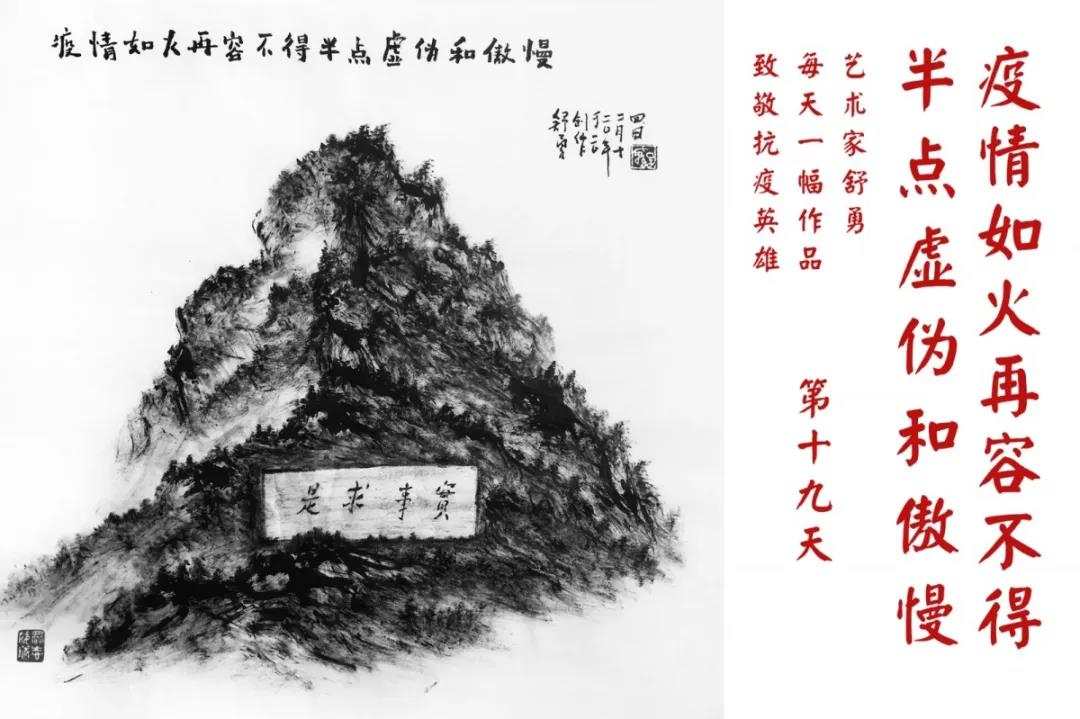 疫情如火再容不得半点虚伪和傲慢
舒勇
创作
于二〇二〇年
二月十
四日
實事求是
疫情如火再容不得
半点虚伪和傲慢
艺术家舒勇
每天一幅作品
致敬抗疫英雄
第十九天